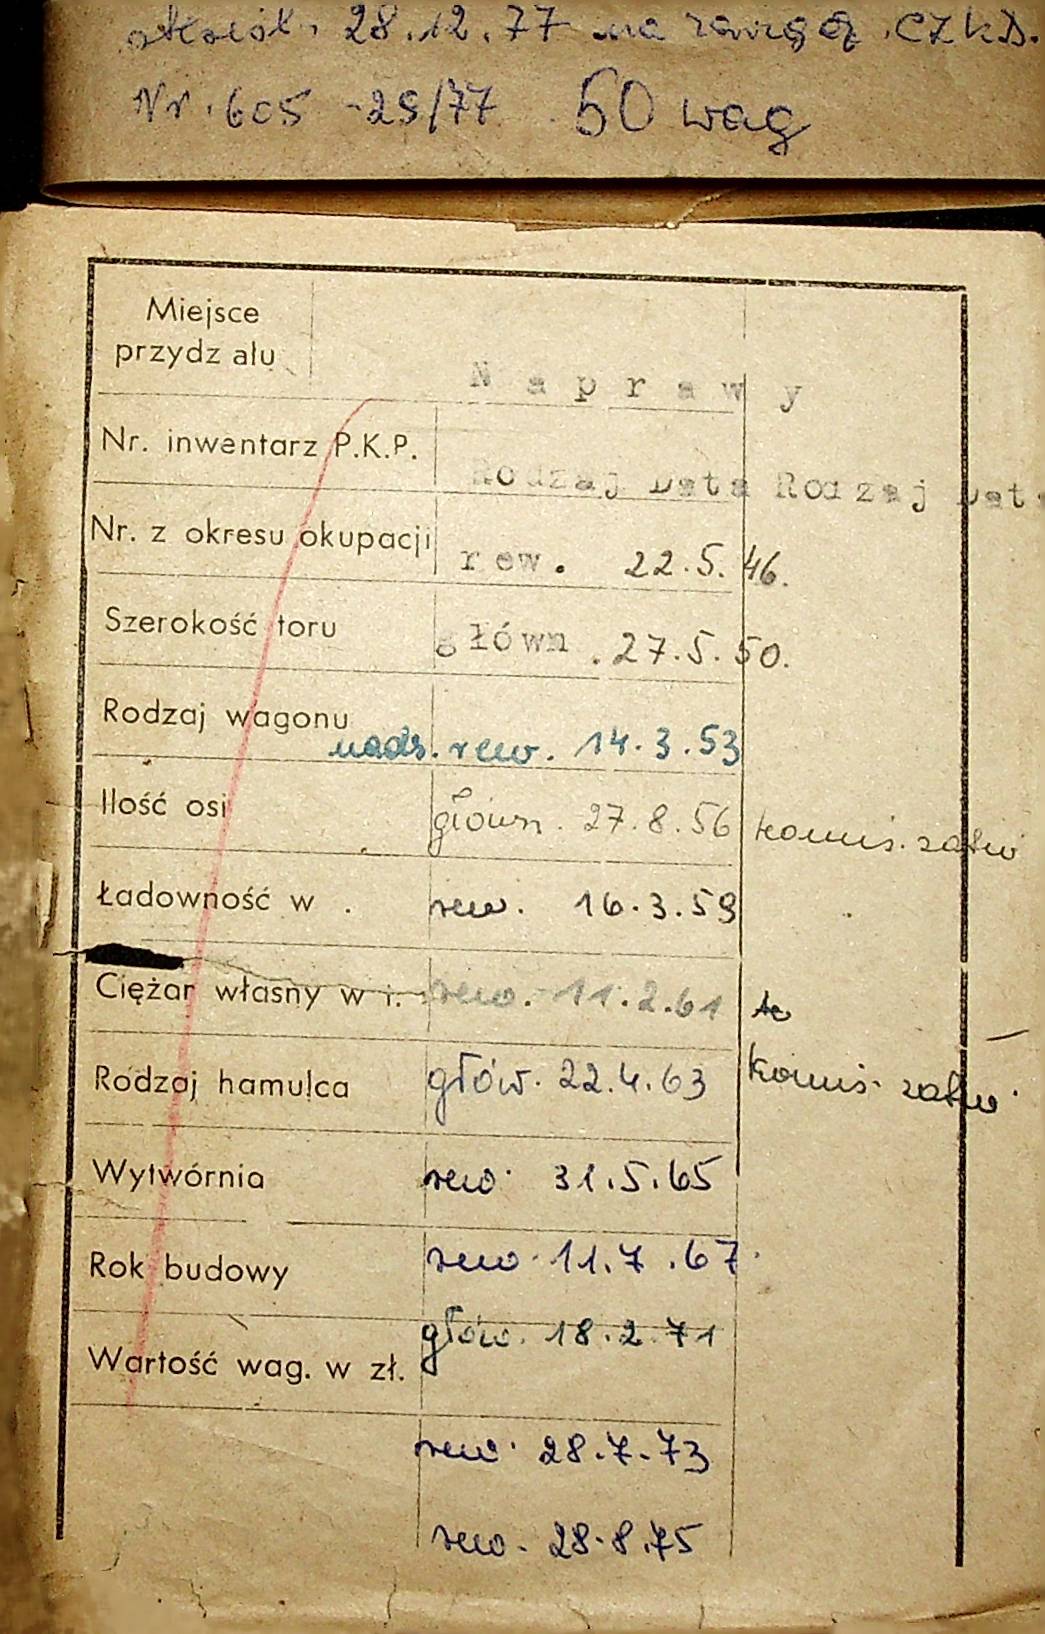 28.12.77 na CZKD.
Nr. 605 -29/77 50 wag
Miejsce
przydz ału
N a p r a w y
Nr. inwentarz P.K.P.
Rodzaj Data Rodzaj Data
Nr. z okresu okupacji
rew. 22.5.46.
Szerokość toru
główn. 27.5.50.
Rodzaj wagonu
nads. rew. 14.3.53
Ilość osi
główn. 27.8.56 komis. zatw
Ładowność w .
rew. 16.3.59
Ciężar własny w t. rew. 11.2.61
Rodzaj hamulca głów. 22.4.63 komis. zatw.
Wytwórnia rew. 31.5.65
Rok budowy rew. 11.7.67.
Wartość wag. w zł. głów. 18.2.71
rew. 28.7.73
rew. 28.8.75